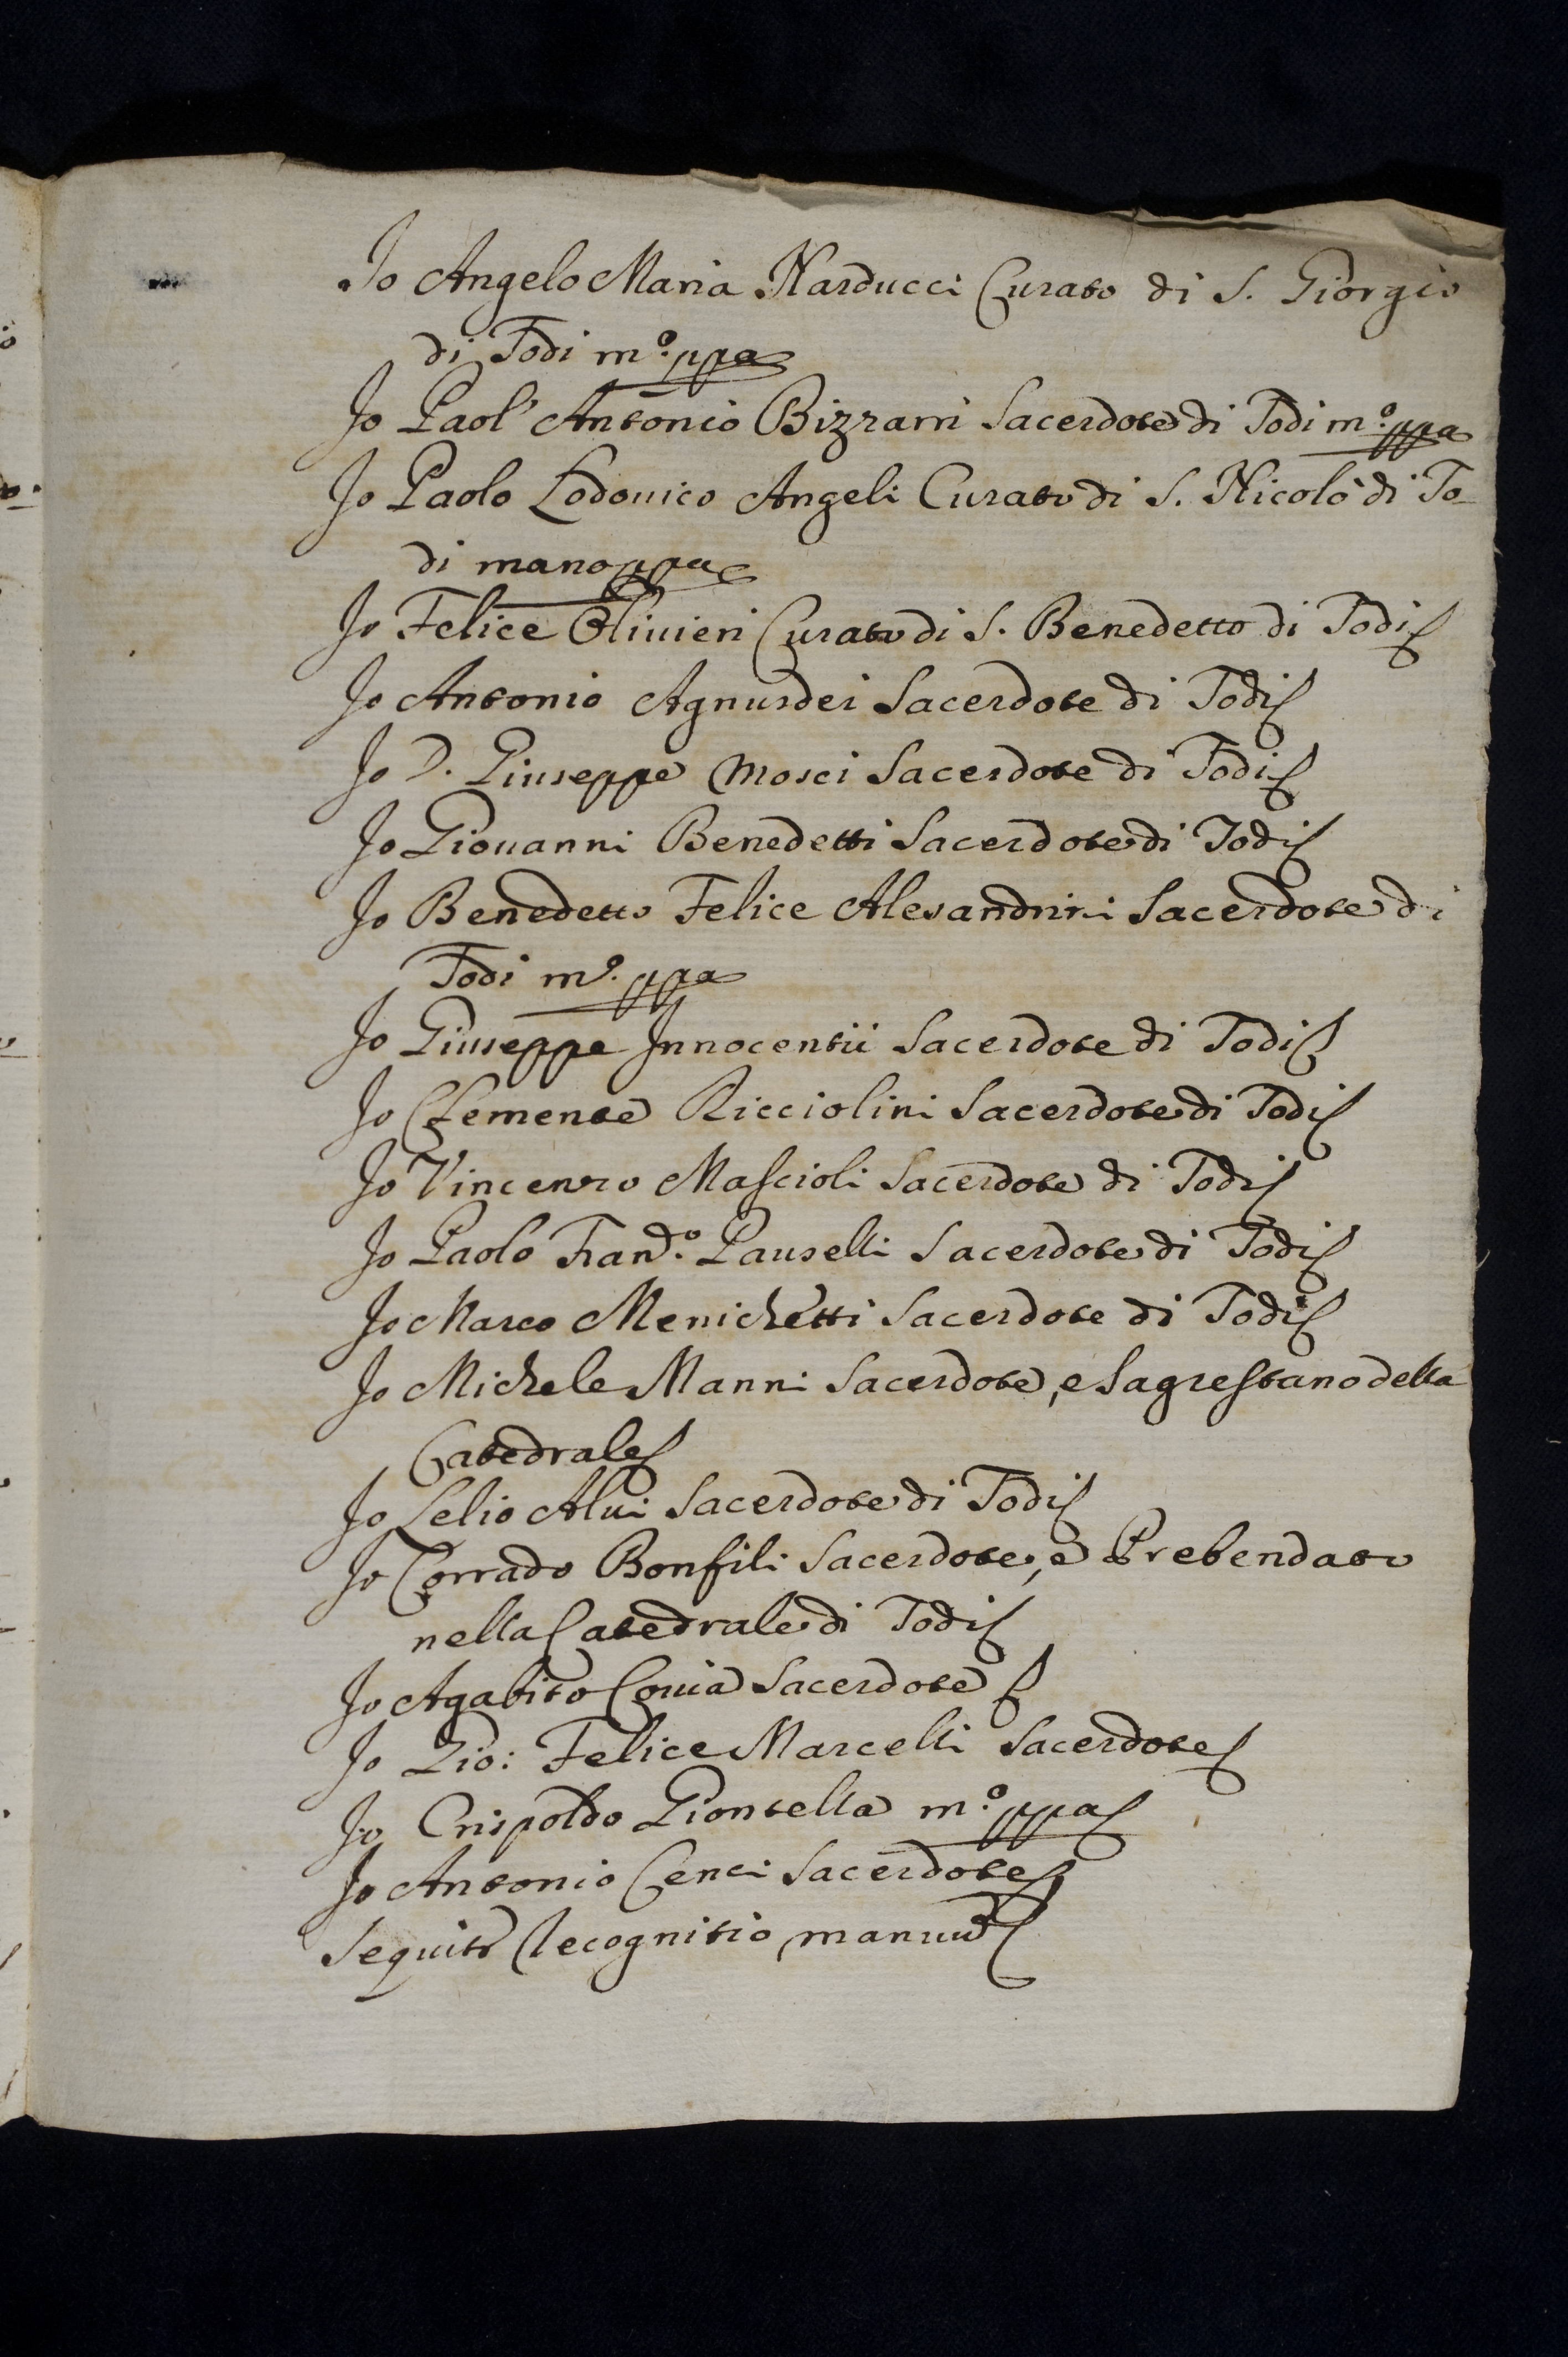 Io Angelo Maria Narducci Curato di S. Giorgio
di Todi m.º ppa
Io Paol' Antonio Bizzarri Sacerdote di Todi m.º ppa
Io Paolo Lodouico Angeli Curato di S. Nicolò di To-
di mano ppa
Io Felice Oliuieri Curato di S. Benedetto di Todi
Io Antonio Agnusdei Sacerdote di Todi
Io D. Giuseppe Mosci Sacerdote di Todi
Io Giouanni Benedetti Sacerdote di Todi
Io Benedetto Felice Alesandrini Sacerdote di
Todi m.º ppa
Io Giuseppe Innocentii Sacerdote di Todi
Io Clemente Ricciolini Sacerdote di Todi
Io Vincenzo Mascioli Sacerdote di Todi
Io Paolo Fran.º Pauselli Sacerdote di Todi
Io Marco Menichetti Sacerdote di Todi
Io Michele Manni Sacerdote, e Sagrestano della
Catedrale
Io Lelio Alui Sacerdote di Todi
Io Corrado Bonfili Sacerdote, e Prebendato
nella Catedrale di Todi
Io Agabito Sacerdote
Io Gio: Felice Marcelli Sacerdote
Io Crispoldo Giontella m.º ppa
Io Antonio Cenci Sacerdote
Sequitr Recognitio manuū